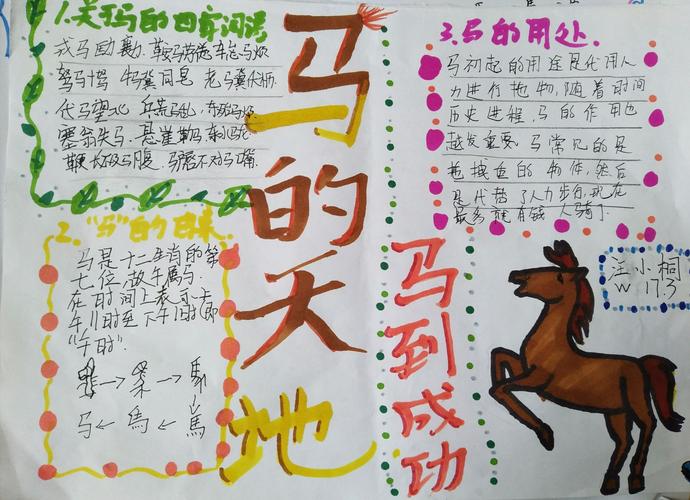 1.关于马的四字词语
戎马 鞍马劳
驽马十驾 牛骥同皂 老骥伏枥
代马望北 兵荒马乱
塞翁失马 悬崖勒马
鞭长不及马腹 马唇不对马嘴
2.“马”的由来
马是十二生肖的第
七位,故午属马.
在时间上表示上
午11时至下午1时(即
“午时”.
馬
马 馬 馬
马的天地
马到成功
3.马的用处.
马初起的用途是代用人
力进行拖物,随着时间
历史进程,马的作用也
越发重要.马常见的是
拖拽重的物件,然后
是代替了人力步行,现在
最多就有 人骑
汪小桐
W 173